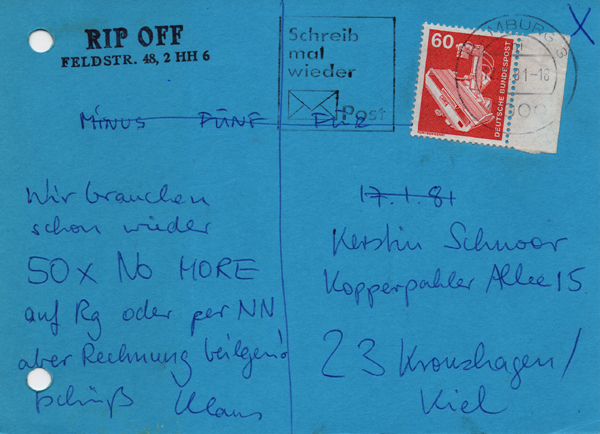 RIP OFF
FELDSTR. 48, 2 HH 6
Schreib
mal
wieder
Post
60
DEUTSCHE BUNDESPOST
HAMBURG 3
81-18
X
MINUS FÜNF FÜR
Wir brauchen
schon wieder
50x NO MORE
auf Rg oder per NN
aber Rechnung beilgen!
Tschüß Klaus
17.1.81
Kerstin Schnoor
Kopperpahler Allee 15
23 Kronshagen/
Kiel